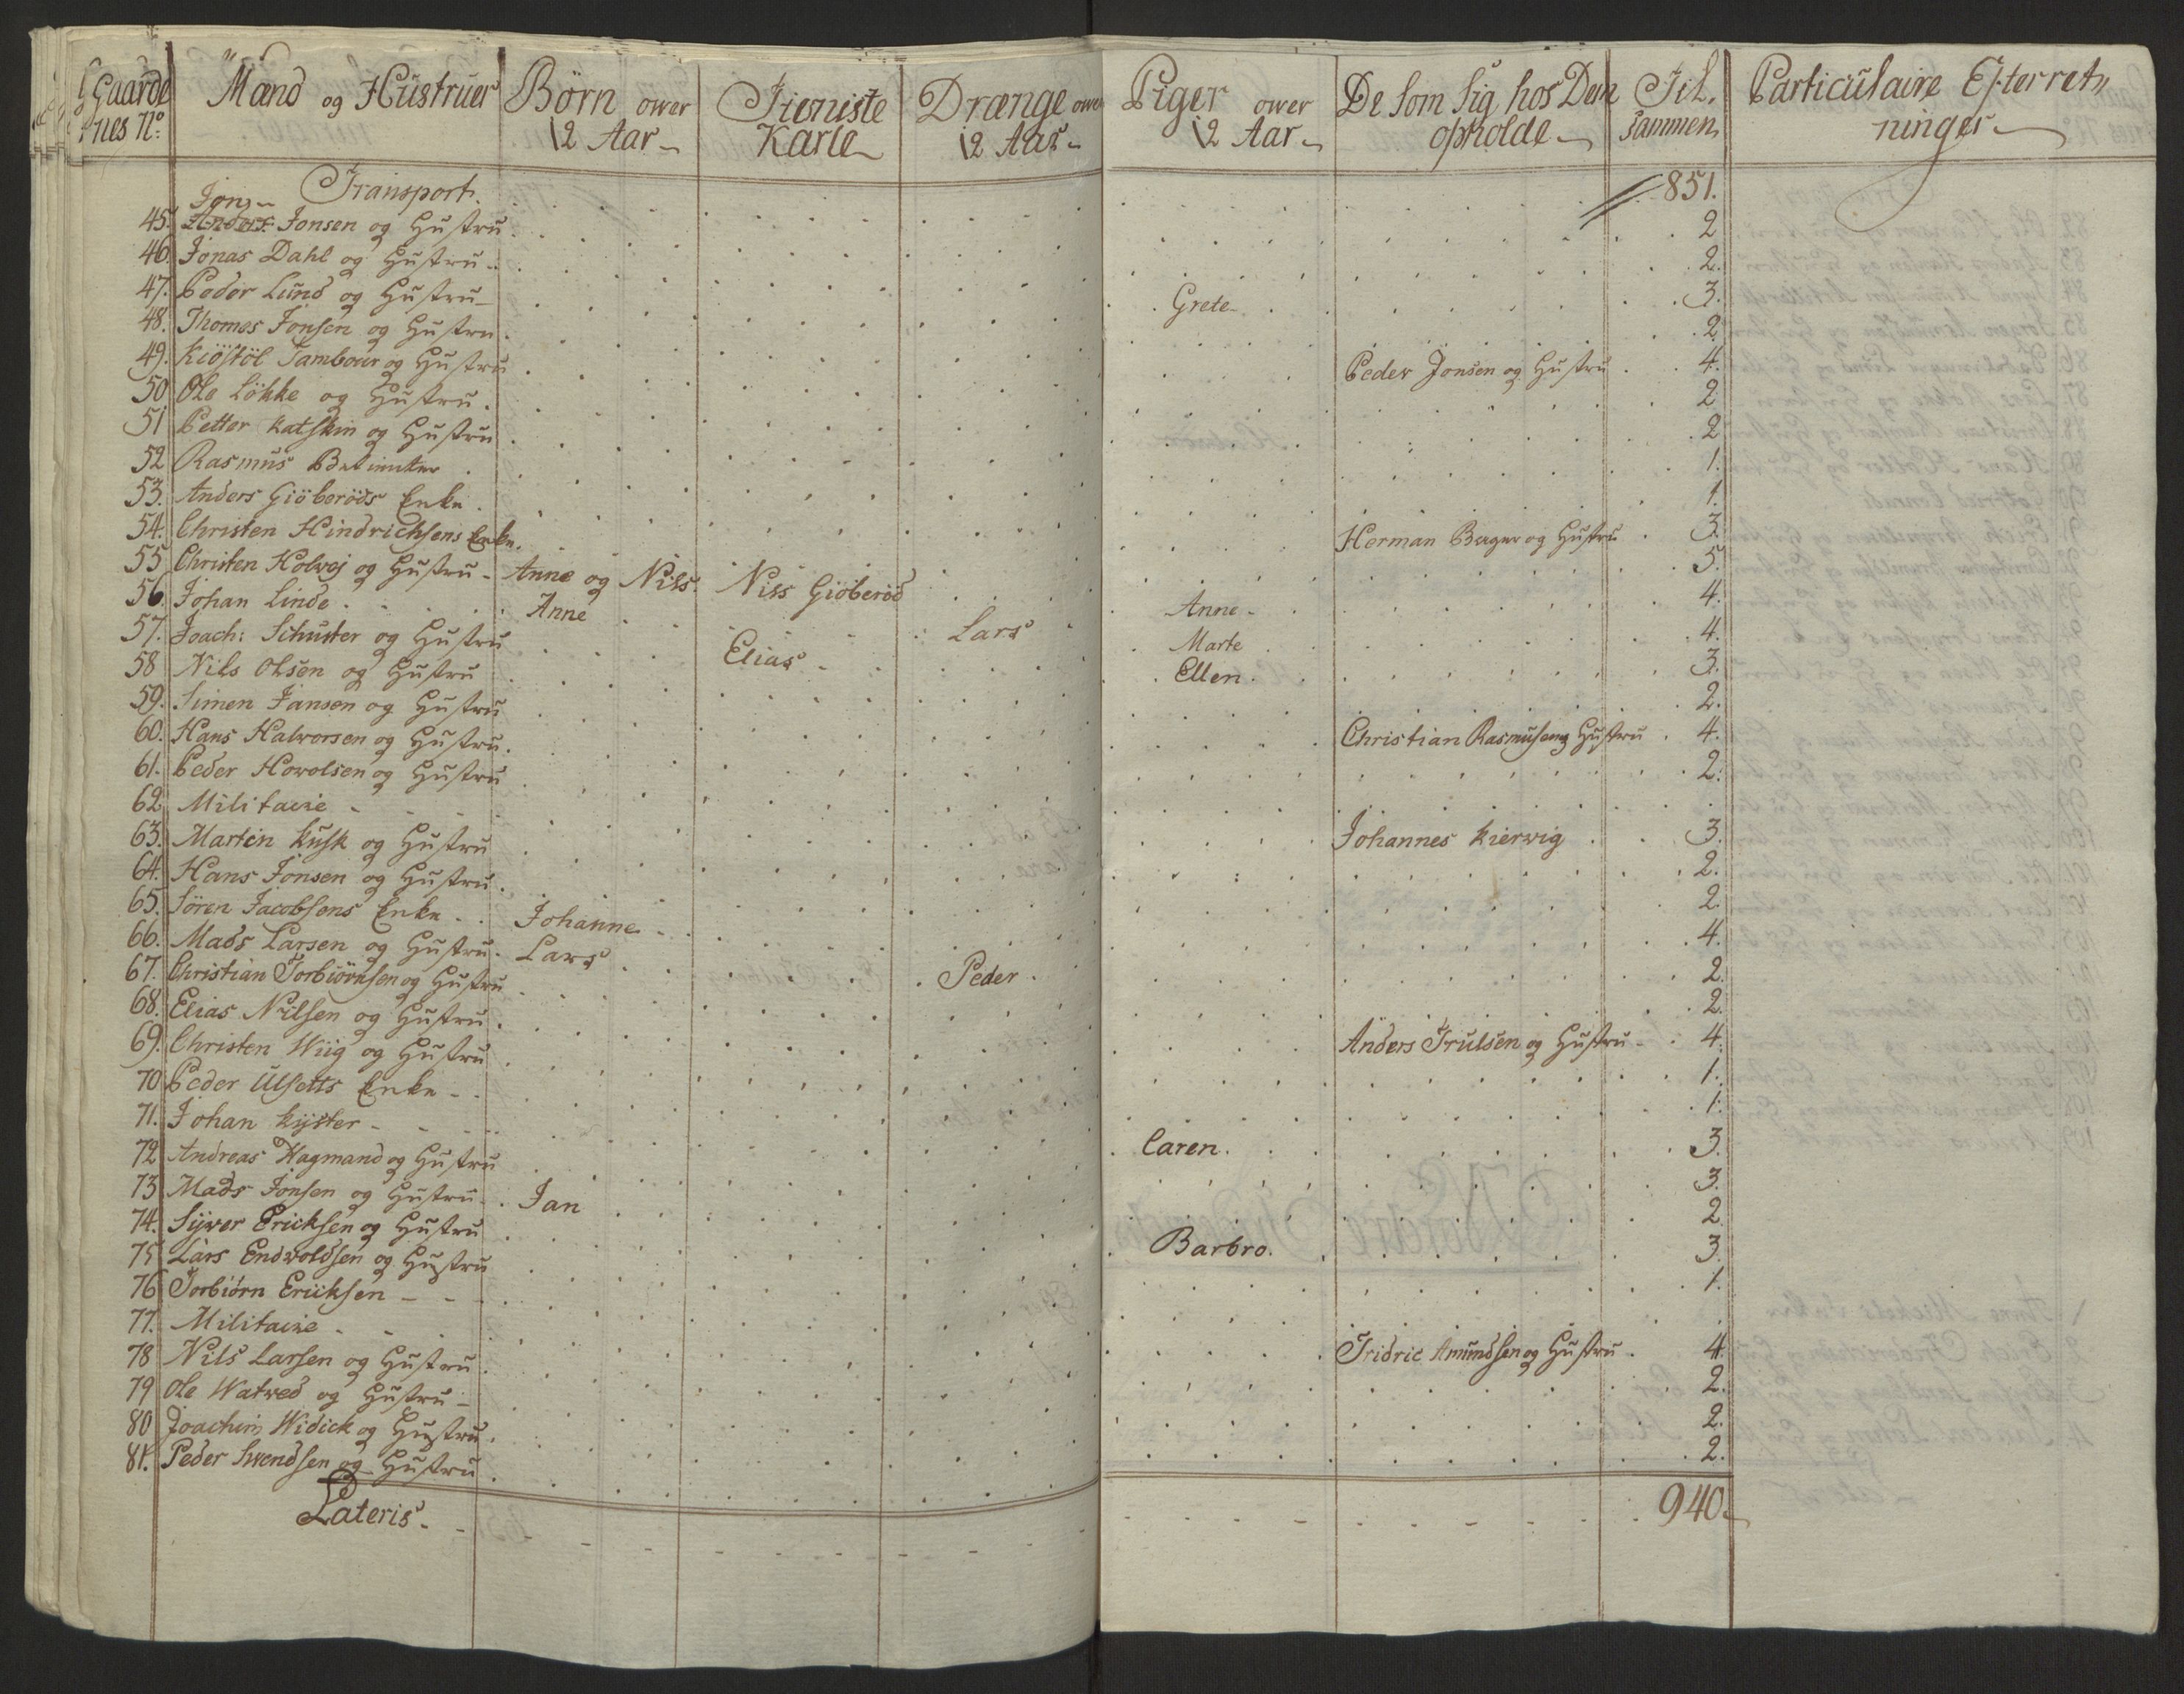 Gaarde nes No. | Mænd og Hustruer | Børn over 12 Aar | Tieniste Karle | Drænge over 12 Aar | Piger over 12 Aar | De som sig hos Dem opholde | Til sammen | Particulaire Efterretninger
Transport | 851.
45. Jens Jonsen og Hustru | 2
46. Jonas Dahl og Hustru | 2.
47. Peder Lund og Hustru | Grete | 3.
48. Thomes Jonsen og Hustru | 2
49. Kiöstöl Tambour og Hustru | Peder Jonsen og Hustru | 4.
50 Ole Lökke og Hustru | 2
51 Petter Katskin og Hustru | 2
52 Rasmus | 1.
53. Anders Giöberöds Enke | 1.
54. Christen Hindrichsens Enke | Herman Berger og Hustru | 3.
55 Christen Holvej og Hustru | Anne og Nils | Nils Giöberöd | 5.
56. Johan Linde | Anne | Lars | Anne | 4.
57. Joach: Schuster og Hustru | Elias | Marte | 4.
58 Nils Olsen og Hustru | Ellen | 3.
59. Simen Jansen og Hustru | 2.
60. Hans Halvorsen og Hustru | Christian Rasmusen og Hustru | 4.
61. Peder Hovolsen og Hustru | 2.
62 Militaire
63. Marten Kusk og Hustru | Johannes Kierwig | 3.
64. Hans Jonsen og Hustru | 2.
65. Sören Jacobsens Enke | Johanne | 2.
66. Mads Larsen og Hustru | Lars | Peder | 4.
67. Christian Torbiörnsen og Hustru | 2.
68. Elias Nilsen og Hustru | 2.
69. Christen Wiig og Hustru | Anders Trulsen og Hustru | 4.
70 Peder Ulsetts Enke | 1.
71. Johan Kyster | 1.
72 Andreas Wagmand og Hustru | Caren | 3.
73 Mads Jonsen og Hustru | Jan | 3.
74. Syver Ericksen og Hustru | 2
75 Lars Endvoldsen og Hustru | Barbro | 3
76 Torbiörn Ericksen | 1.
77. Militaire
78 Nils Larsen og Hustru | Fridric Amundsen og Hustru | 4
79 Ole Watved og Hustru | 2.
80 Joachim Widick og Hustru | 2.
81. Peder Svendsen og Hustru | 2.
Lateris | 940.